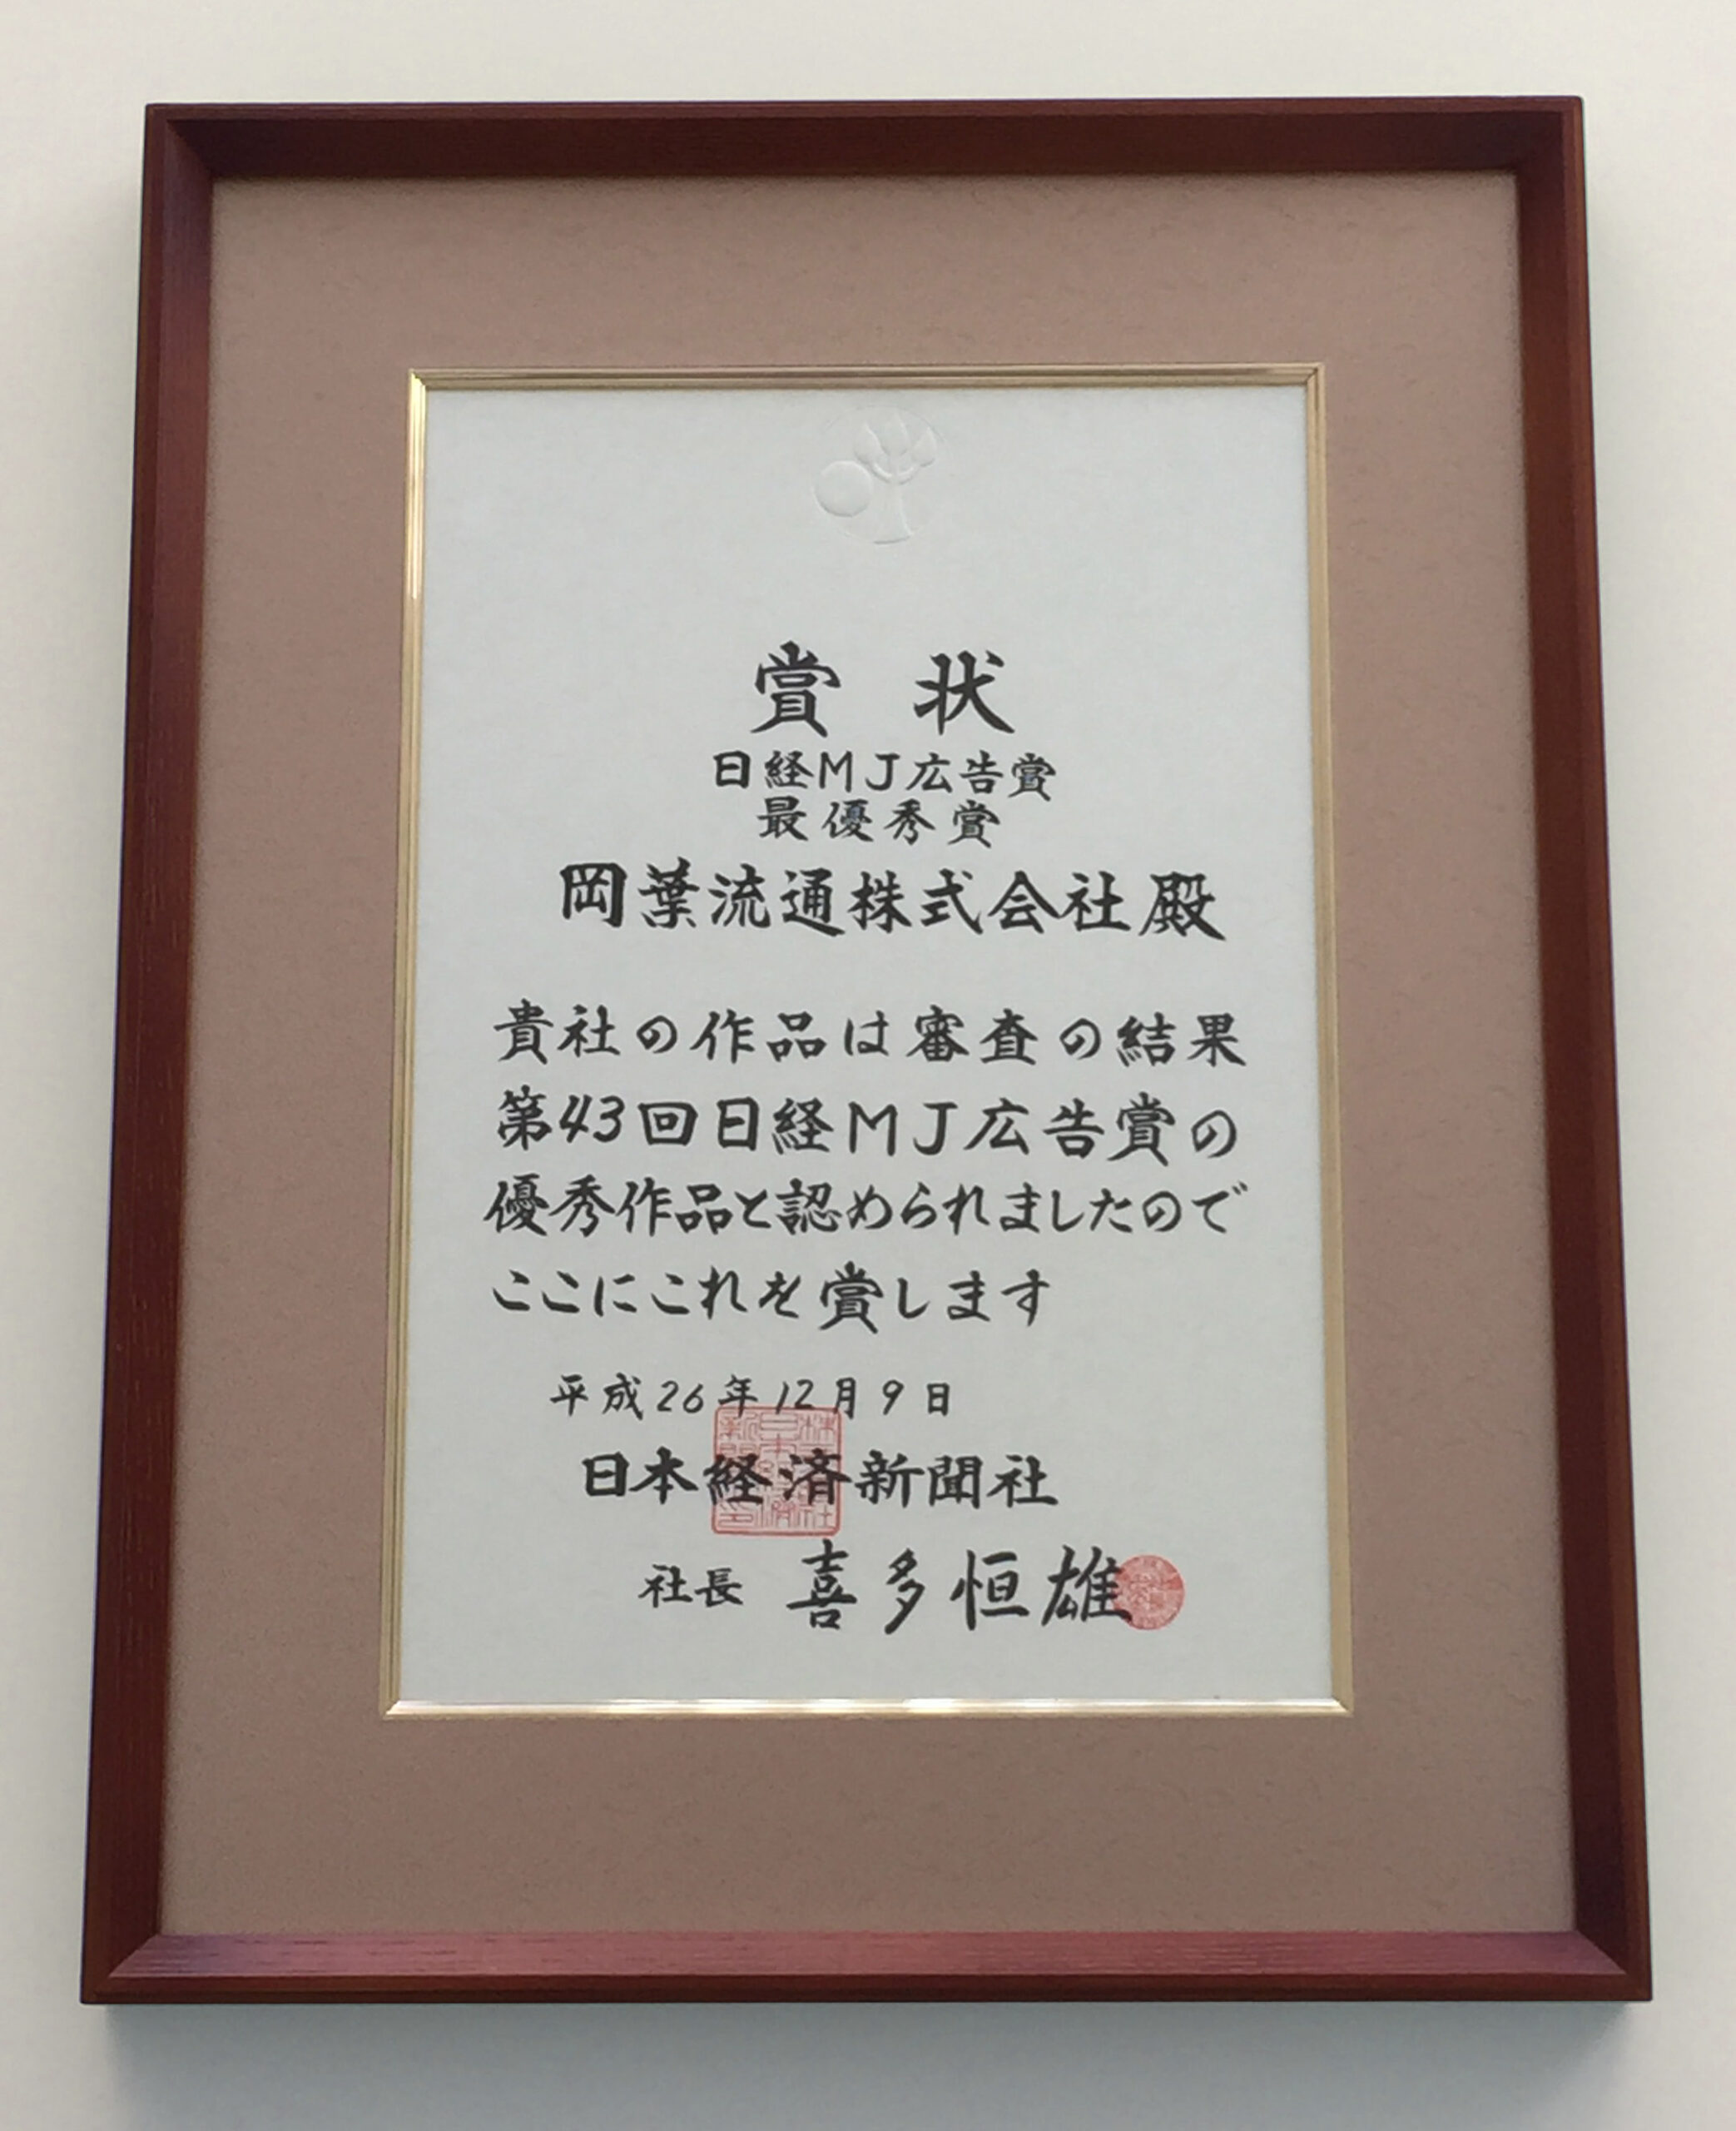 賞状
日経MJ広告賞
最優秀賞
岡葉流通株式会社殿
貴社の作品は審査の結果
第43回日経MJ広告賞の
優秀作品と認められましたので
ここにこれを賞します
平成26年12月9日
日本経済新聞社
社長 喜多恒雄